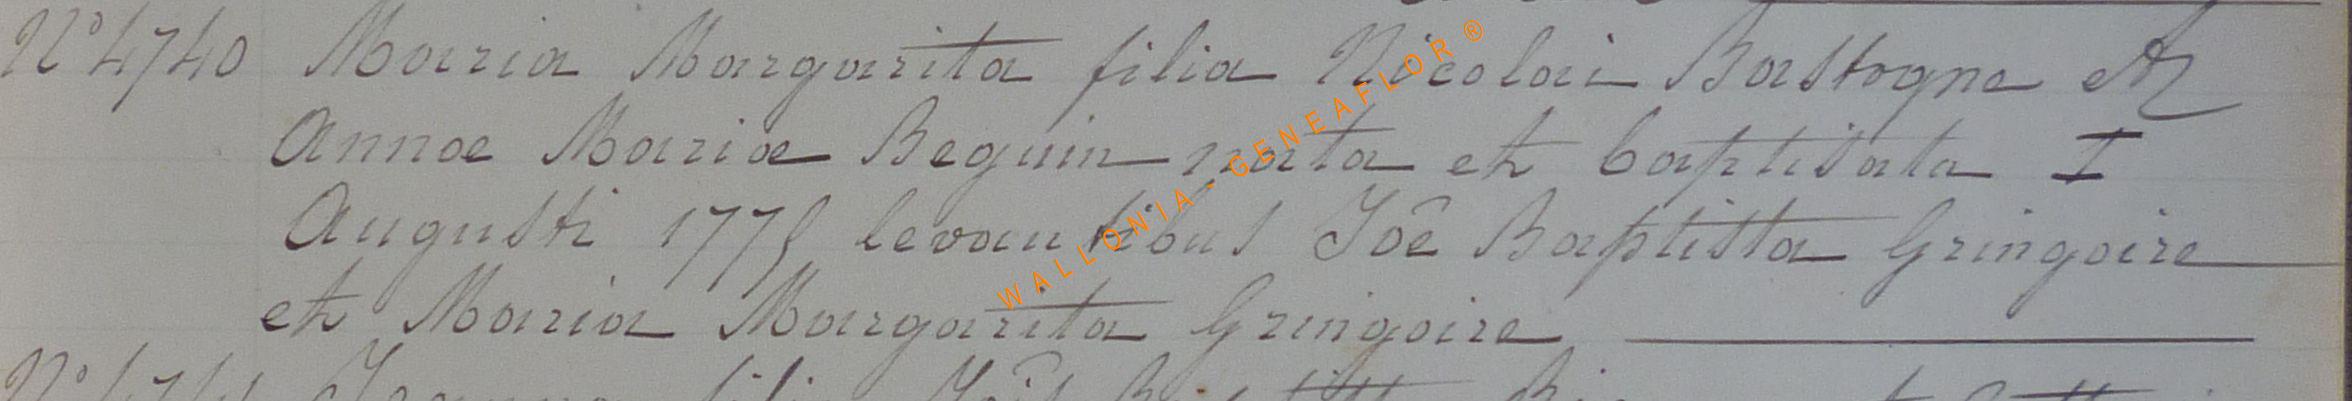 N° 4740 Maria Margarita filia Nicolai Bastogne et
Annae Mariae Beguin nata et baptisata I
Augusti 1775 levantibus Joê Baptista Gringoire
et Maria Margarita Gringoire
WALLONIA - GENEAFLOR ®